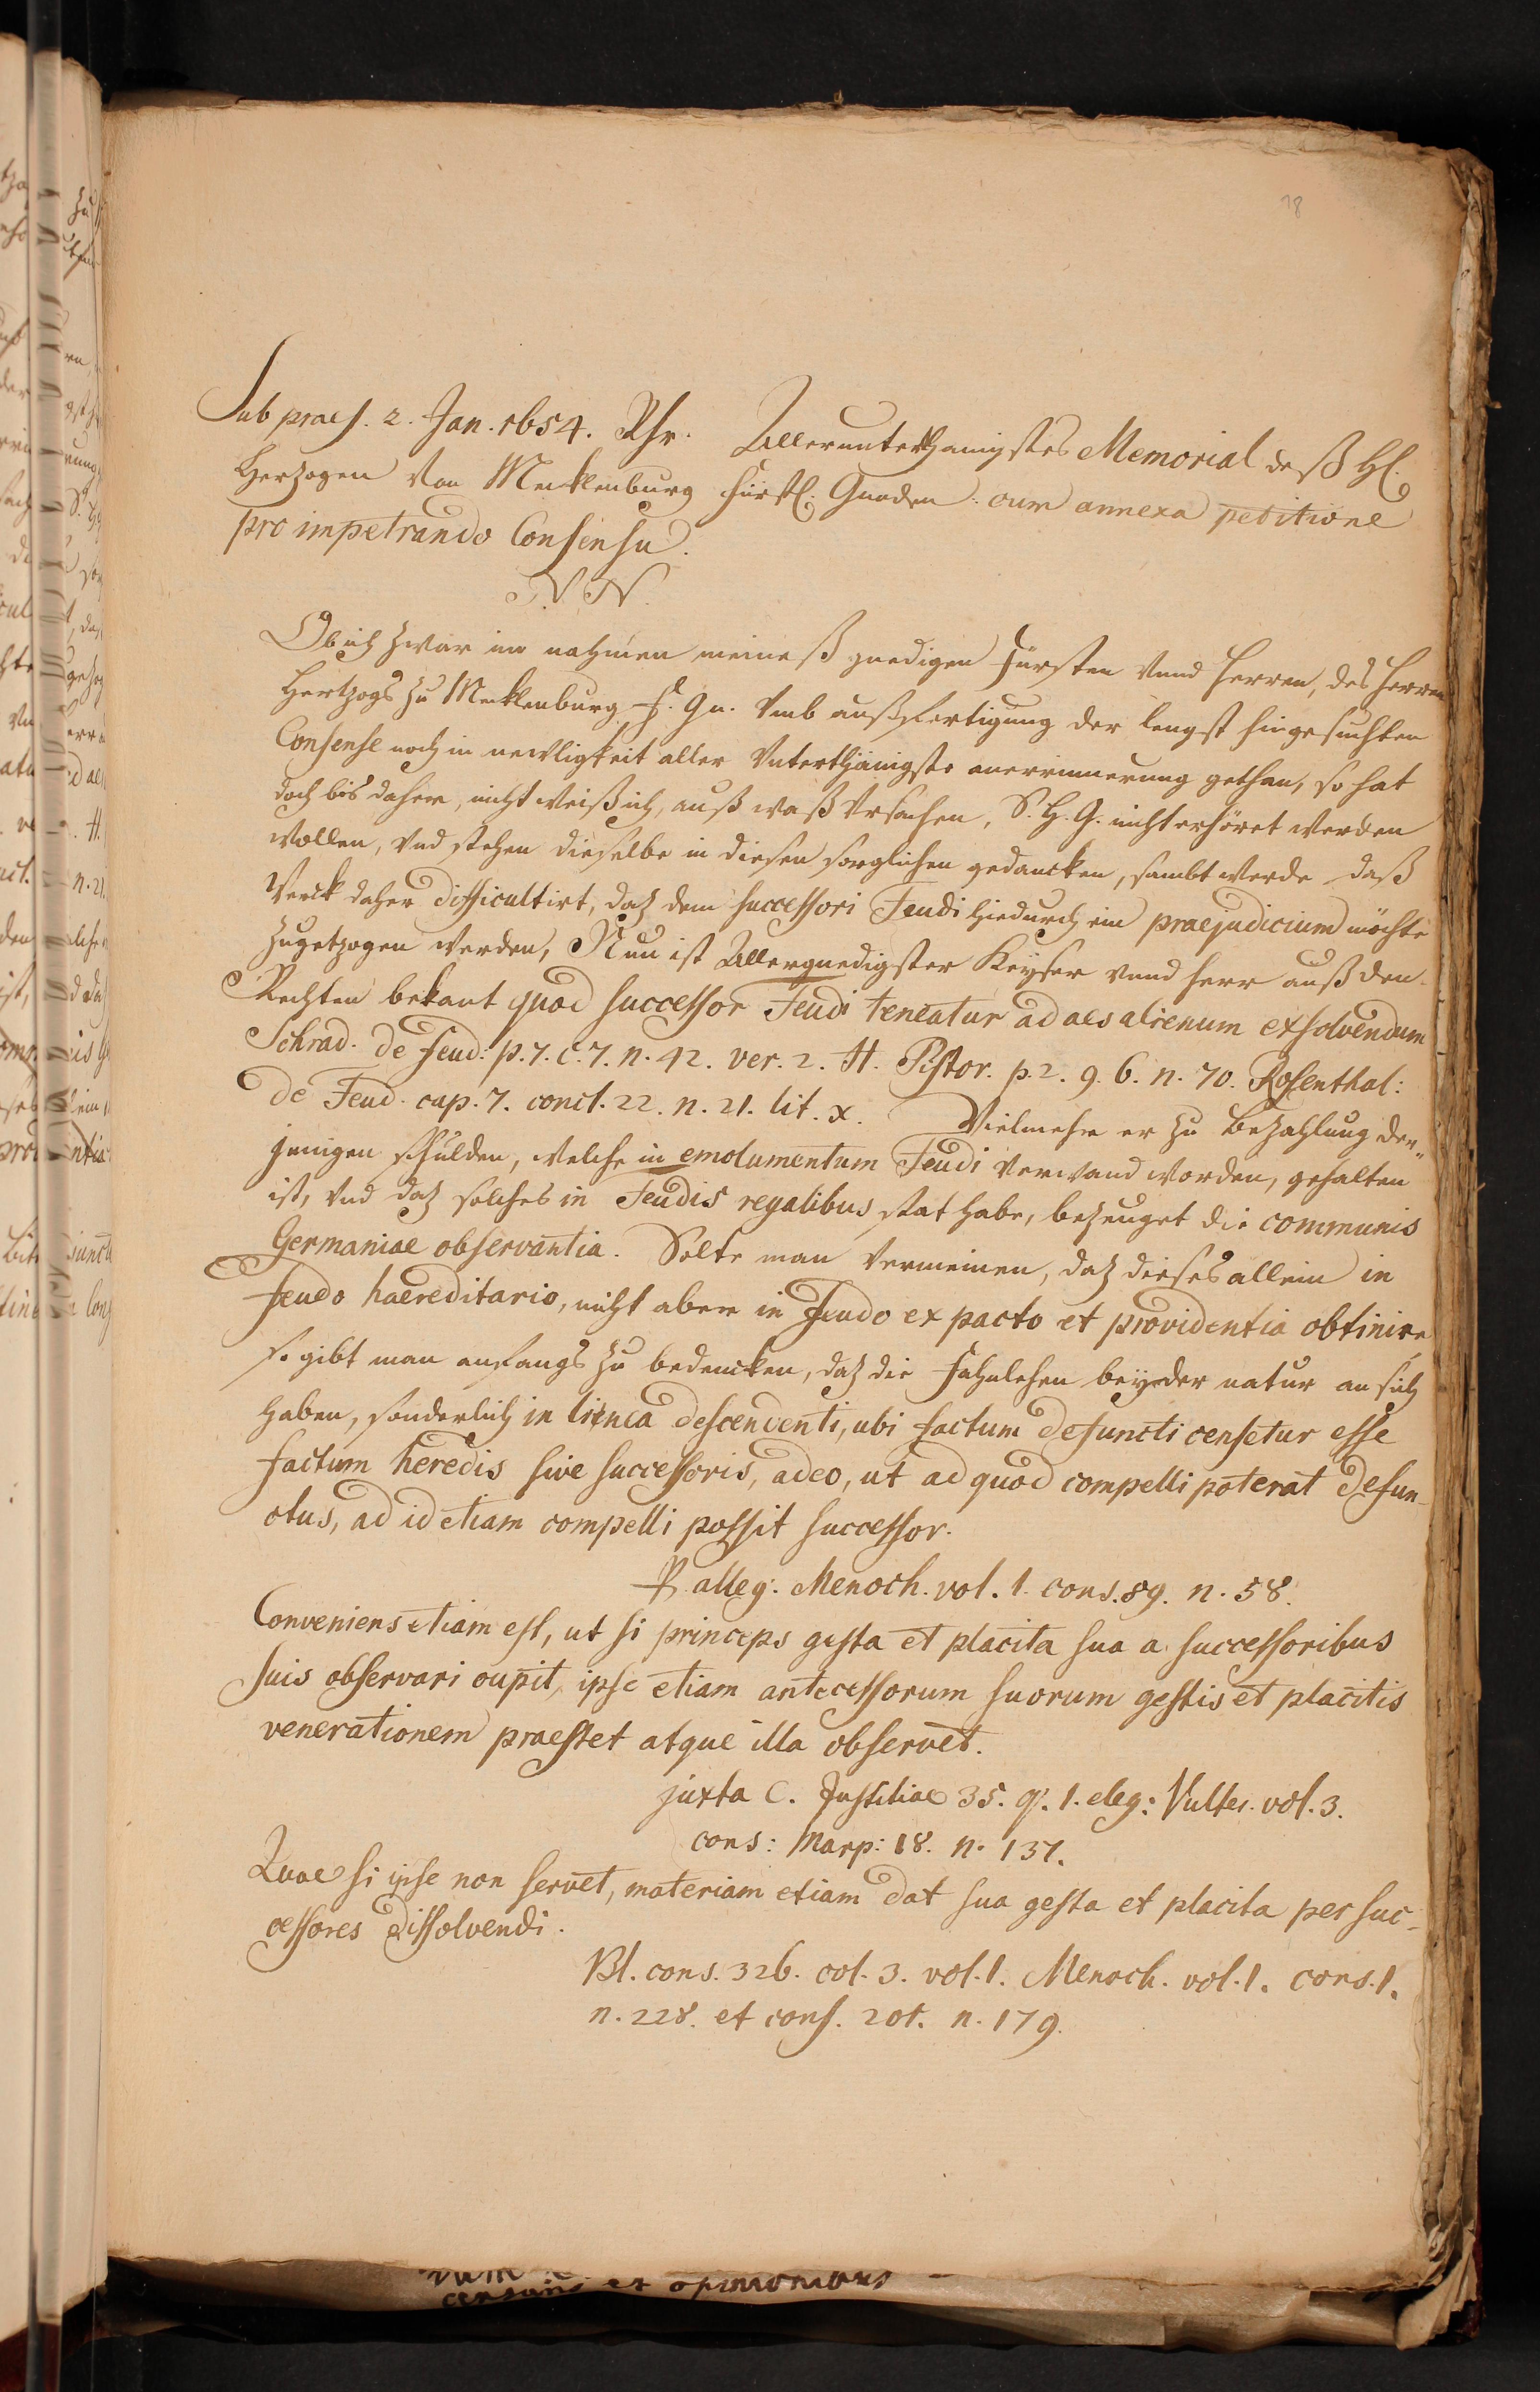 78
Sub praes. 2. Jan. 1654. Rhr. Allerunterthänigstes Memorial deß H.
Hertzogen von Mecklenburg fürstl: Gnaden. cum annexa petitione
pro impetrando Consensu.
N. N.
Ob ich zwar im nahmen meineß gnedigen Fürsten vnnd Herren, des Herrn
Hertzogs zu Mecklenburg F. Gn. vmb außfertigung der lengst hingesuchten
Consense noch in newligkeit aller Vnterthänigste anerrinnerung gethan, so hat
doch bis daher, nicht weiß ich, auß waß Vrsachen, S. H. G. nicht erhöret werden
wollen, vnd stehen dieselbe in diesen sorglichen gedancken, sambt werde daß
Werck daher difficultirt, daß dem successori Feudi hiedurch ein praejudicium möchte
zugetzogen werden, Nun ist Allergnedigster Keyser vnnd Herr auß den
Rechten bekant quod successor Feudi teneatur ad aes alienum exsolvendum
Schrad. de feud: p. 7. c. 7. n. 42. ver. 2. H. Pistor. p. 2. q. 6. n. 70. Rosenthal:
de Feud. cap. 7. concl. 22. n. 21. lit. x. Vielmehr er zu Bezahlung der„
jenigen schulden, welche in emolumentum Feudi verwand worden, gehalten
ist, vnd daß solches in Feudis regalibus stat habe, bezeuget die communis
Germaniae observantia. Solte man vermeinen, daß dieses allein in
feudo haereditario, nicht aber in Feudo ex pacto et providentia obtinire
so gibt man anfangs zu bedencken, daß die Fahnlehen beyder natur an sich
haben, sonderlich in linea descendenti, ubi factum defuncti censetur esse
factum heredis sive successoris, adeo, ut ad quod compelli poterat defun-
ctus, ad id etiam compelli possit successor.
alleg. Menoch. vol. 1. cons. 89. n. 58.
Conveniens etiam est, ut si princeps gesta et placita sua a successoribus
suis observari cupit, ipse etiam antecessorum suorum gestis et placitis
venerationem praestet atque illa observet.
juxta C. Justitiae 35. q. 1. eleg: Vultei. vol. 3.
cons: Marp: 18. n. 137.
Quae si ipse non servet, materiam etiam dat sua gesta et placita per suc-
cessores dissolvendi.
Bl. cons. 326. col. 3. vol. 1. Menoch. vol. 1. cons. 1.
n. 228. et cons. 201. n. 179.
et opinionibus